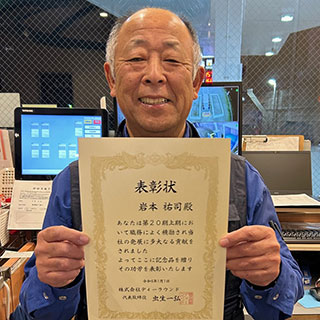 表彰状
岩本 祐司殿
あなたは第20期上期にお
いて職務によく精励され当
社の発展に多大なる貢献を
されました
よってここに記念品を贈り
その功労を表彰いたします
株式会社ディーラウンド
代表取締役 出生一弘